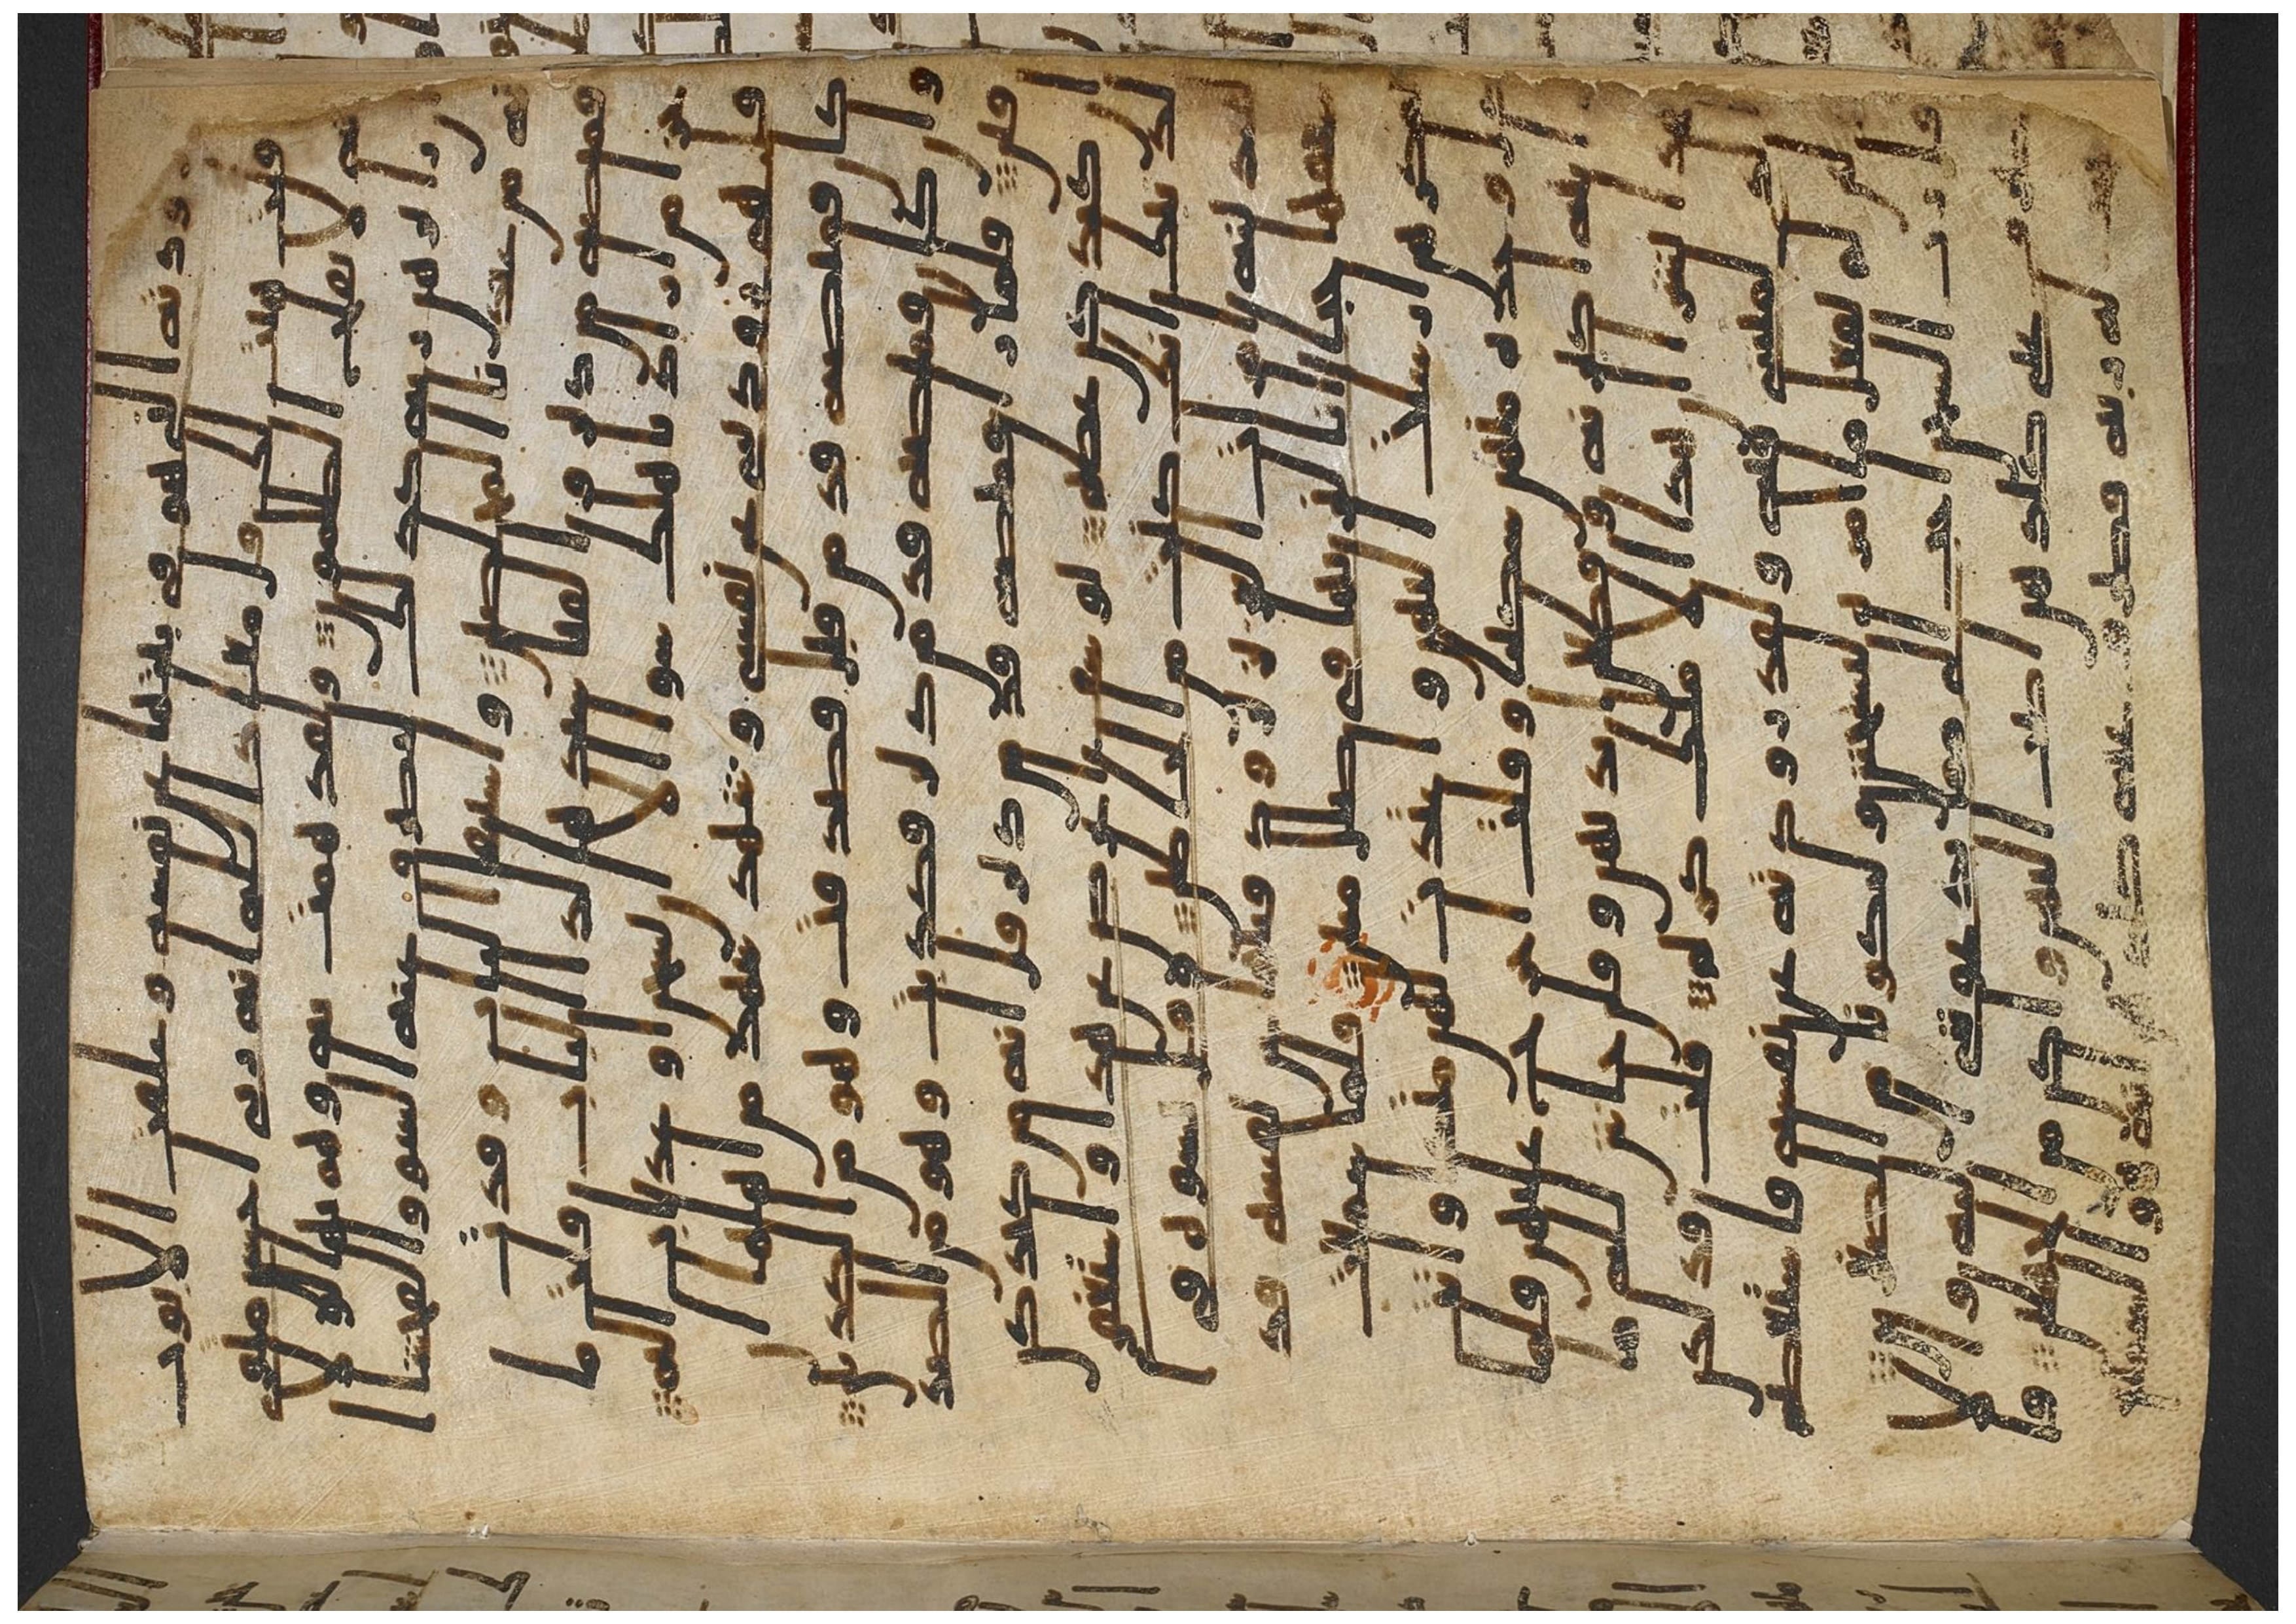 ورودته التي هو في بيتها عن نفسه وغلقت الابوب
وقلت هيت لك قل معاذ الله انه ربي احسن مثوي
انه لا يفلح الظلمون ولقد همت به وهم بها لولا
ان را برهن ربه كذلك لنصرف عنه السو والفحشا
انه من عبدنا المخلصين واستبقا الباب وقدت
قميصه من دبر والفيا سيدها لدا الباب قلت ما
جزا من اراد باهلك سوا الا ان يسجن او عذاب اليم
قل هي رودتني عن نفسي وشهد شهد من اهلها ان
كان قميصه قد من قبل فصدقت وهو من الكذبين
وان كان قميصه قد من دبر فكذبت وهو من الصد
قين فلما را قميصه قد من دبر قل انه من كيدكن
ان كيدكن عظيم يوسف اعرض عن هذا واستغفري
لذنبك انك كنت من الخطين وقل نسوة في
المدينة امرات العزيز ترود فتيها عن نفسه قد
شغفها حبا انا لنريها في ضلل مبين فلما سمعت
بمكرهن ارسلت اليهن واعتدت لهن متكا واتت
كل وحدة منهن سكينا وقلت اخرج عليهن فلما
راينه اكبرنه وقطعن ايديهن وقلن حش لله ما
هذا بشرا ان هذا الا ملك كريم قلت فذلكن
الذي لمتنني فيه ولقد رودته عن نفسه فاستعصم
ولئن لم يفعل ما امره ليسجنن وليكونا من الصغرين
قل رب السجن احب الي مما يدعونني اليه والا
تصرف عني كيدهن اصب اليهن واكن من الجهلين فا
ستجب له ربه فصرف عنه كيدهن انه هو السميع